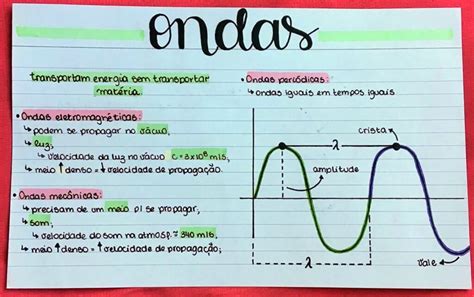 ondas
transportam energia sem transportar
matéria.
• Ondas eletromagnéticas:
↳ podem se propagar no vácuo;
↳ luz;
↳ velocidade da luz no vácuo c = 3x10⁸ m/s
↳ meio ↑ denso = ↓ velocidade de propagação.
• Ondas mecânicas:
↳ precisam de um meio p/ se propagar;
↳ som;
↳ velocidade do som na atmosf. ≈ 340 m/s
↳ meio ↑ denso = ↑ velocidade de propagação;
• Ondas periódicas:
↳ ondas iguais em tempos iguais
crista
λ
amplitude
λ
vale